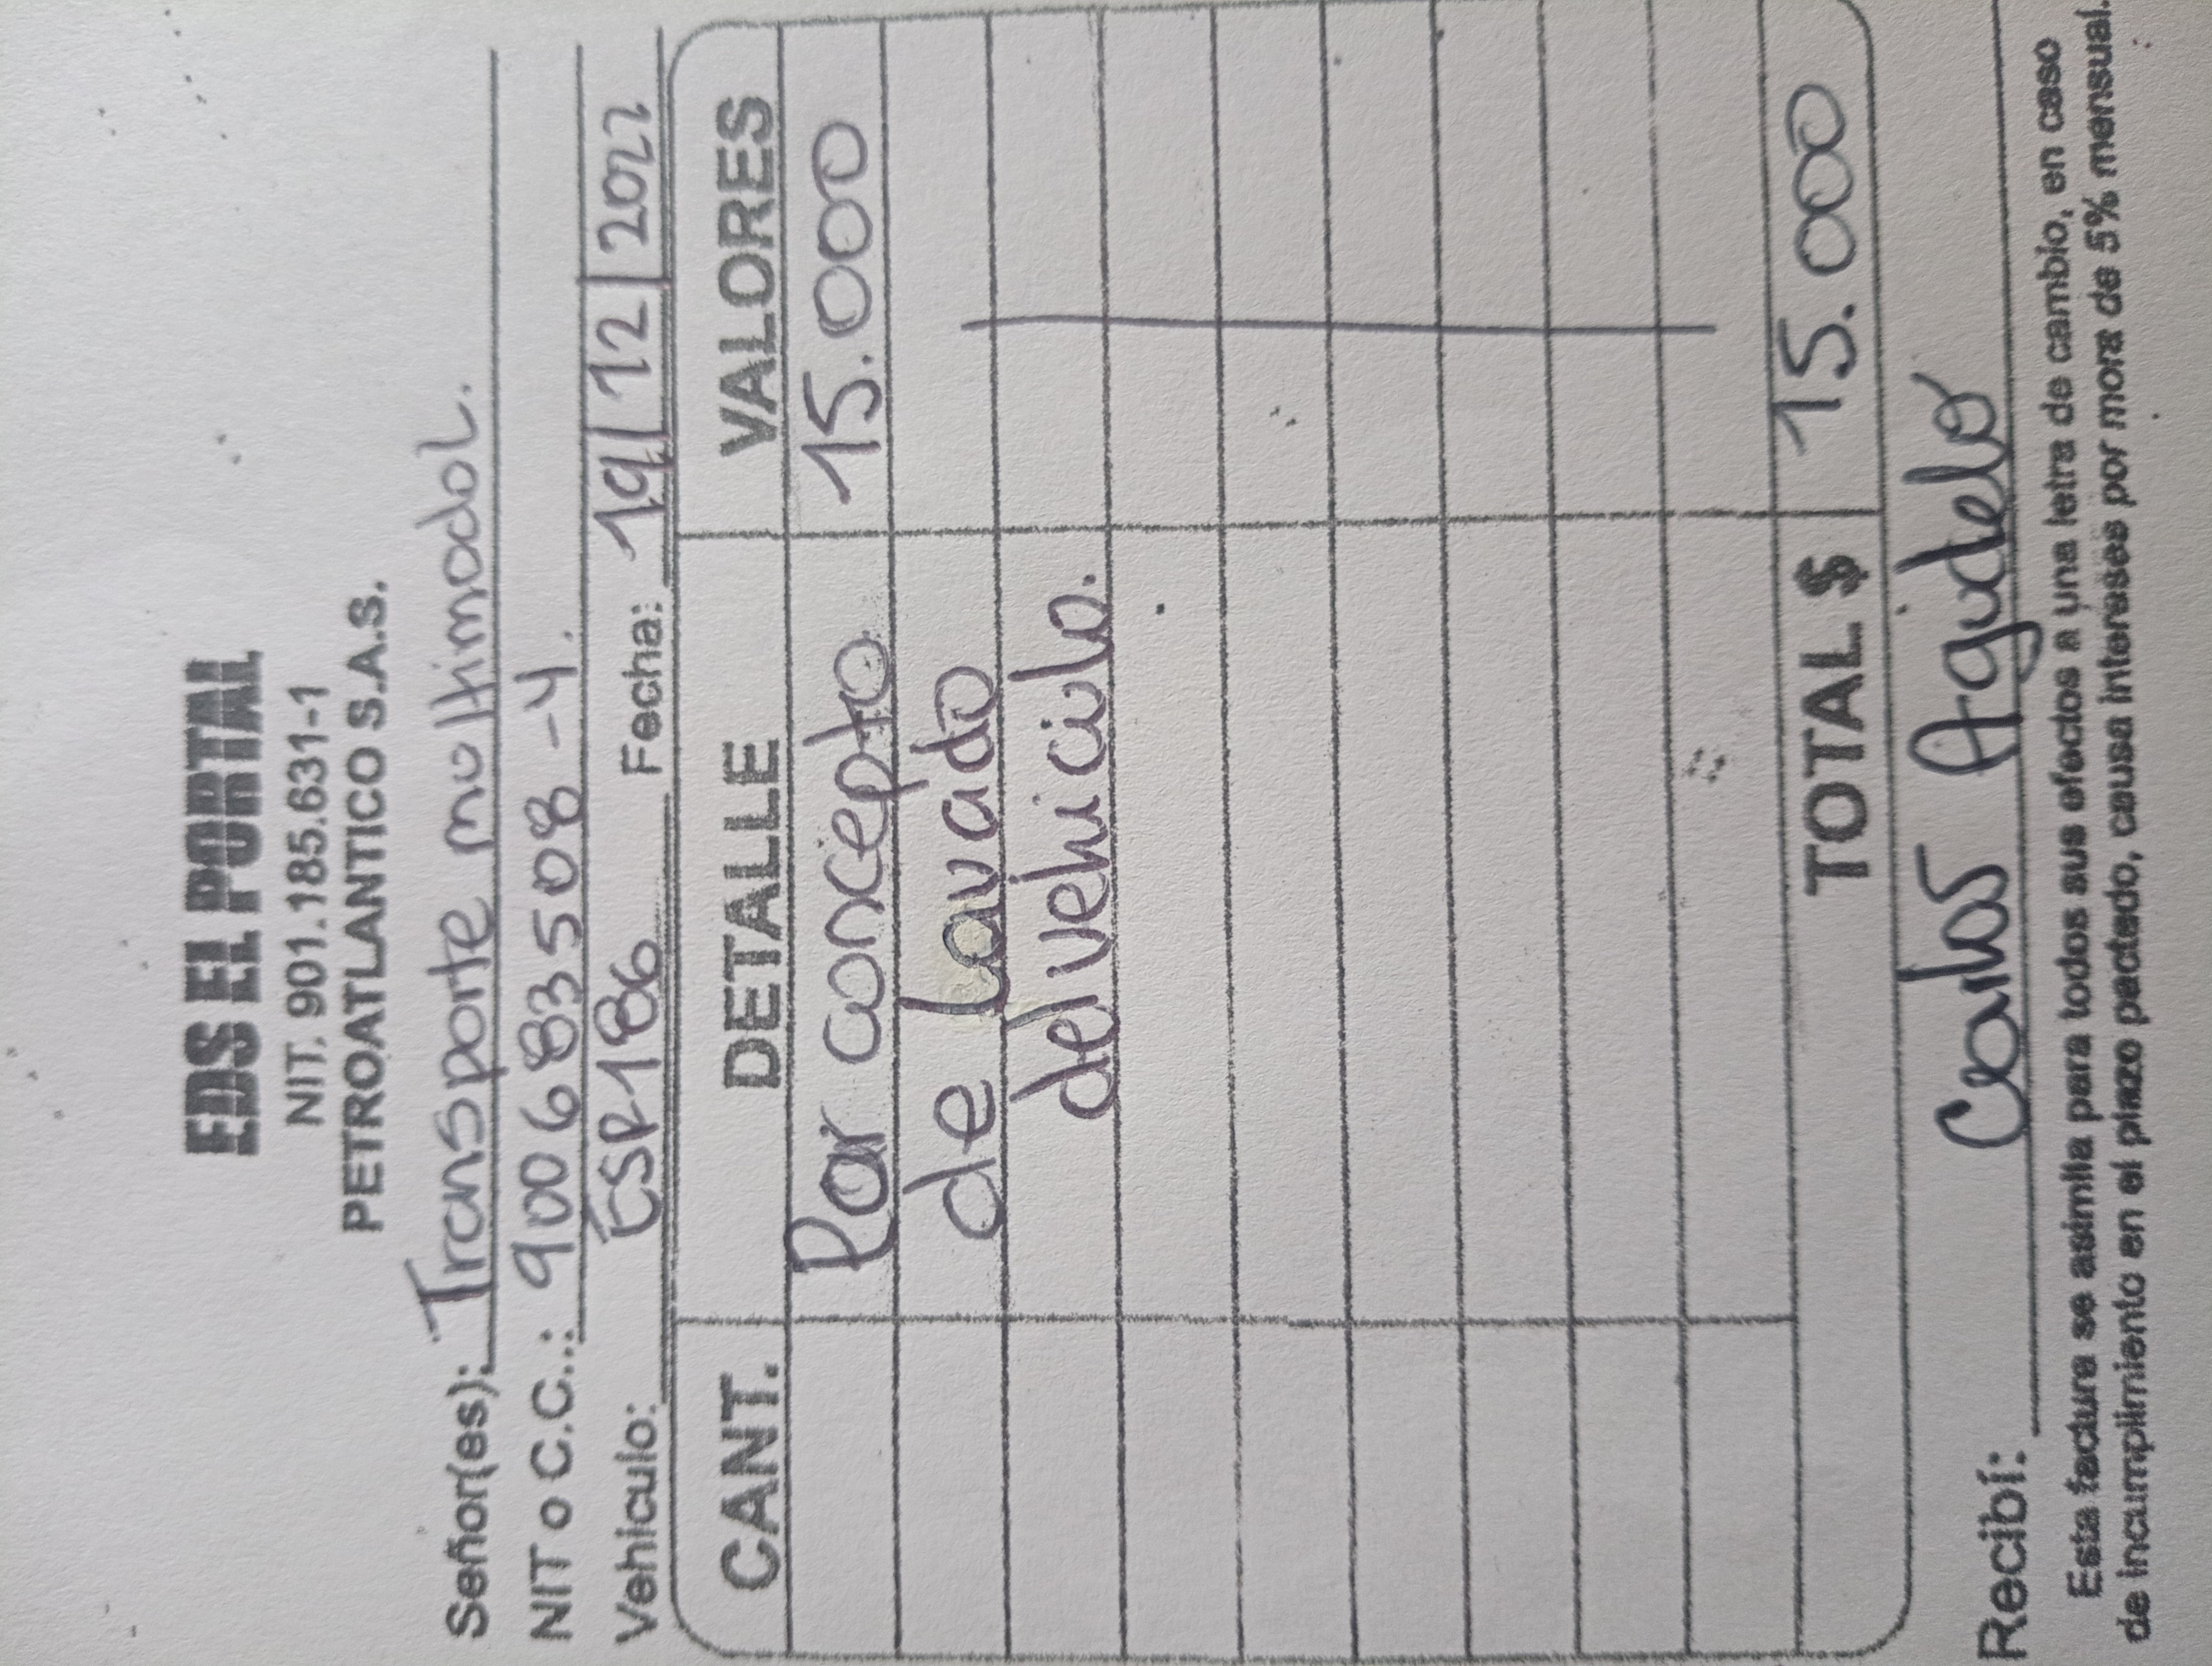 EDS EL PORTAL
NIT. 901.185.631-1
PETROATLANTICO S.A.S.
Señor(es): Transporte multimodal.
NIT o C.C.: 900683508-4.
Vehiculo: ESR186 Fecha: 19 12 2022
CANT. DETALLE VALORES
Por concepto 15.000
de Lavado
del vehiculo.
TOTAL $ 15.000
Recibí: Carlos Agudelo
Esta factura se asimila para todos sus efectos a una letra de cambio, en caso
de incumplimiento en el plazo pactado, causa intereses por mora de 5% mensual.